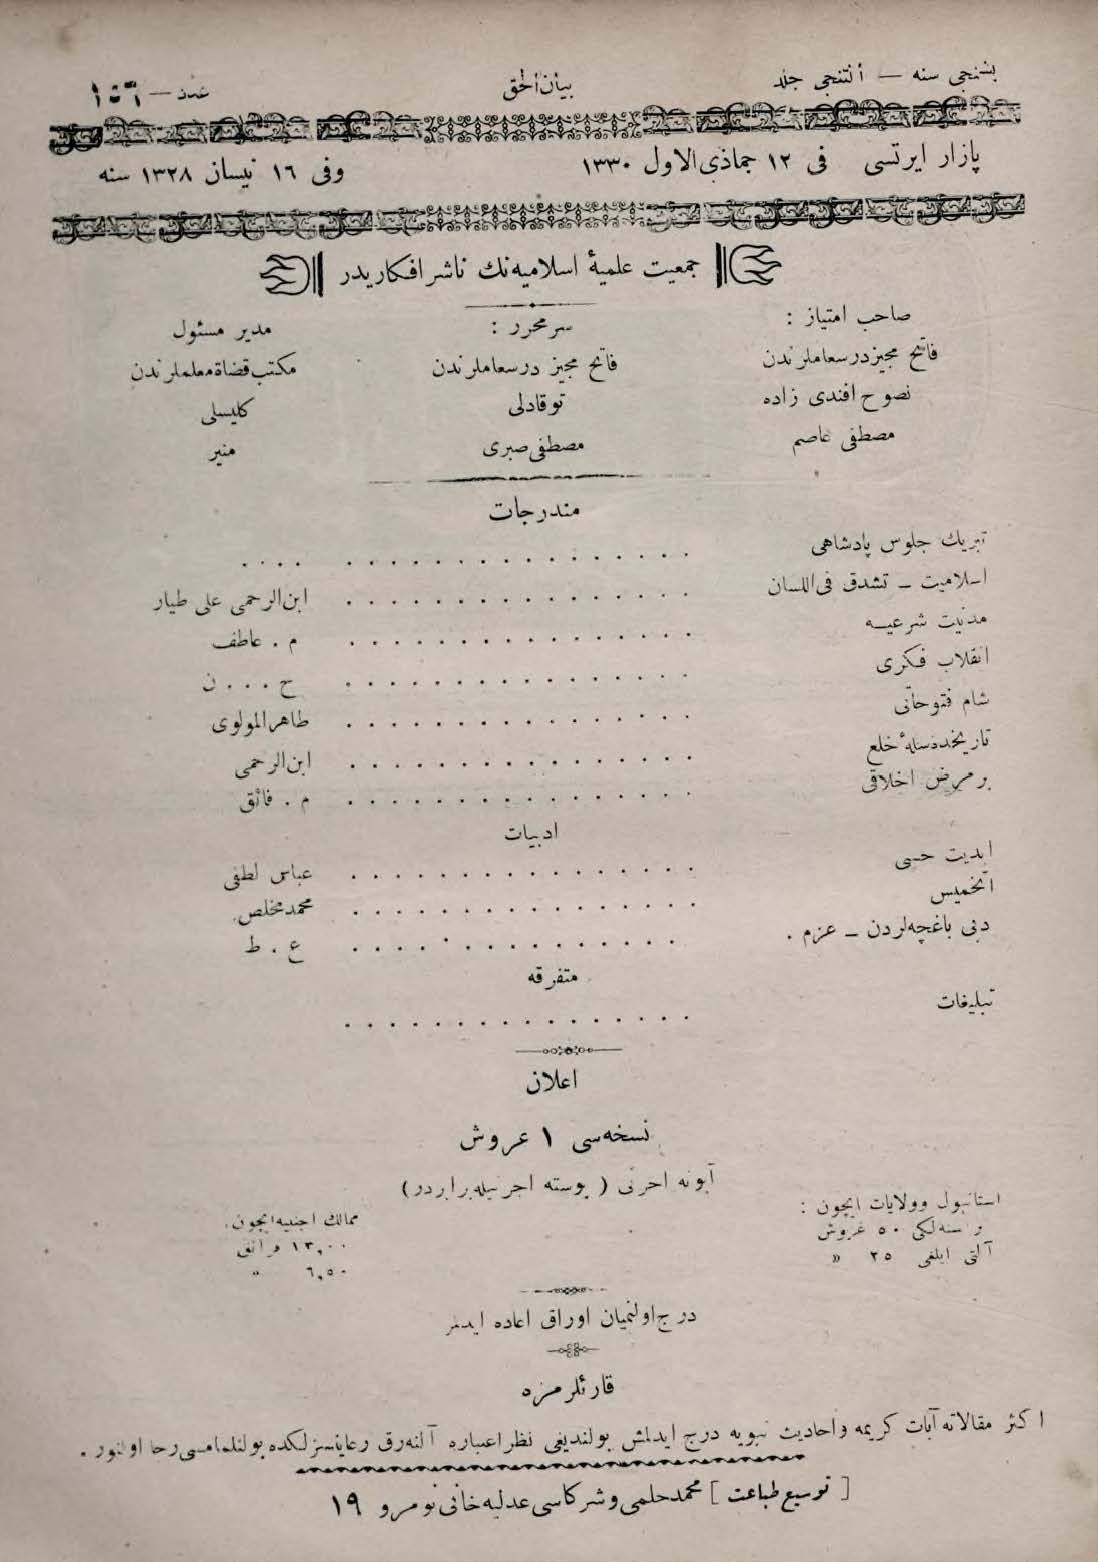 بشنجی سنه — آلتنجی جلد
بیان الحق
عدد — ١٥٦
پازار ایرتسی فی ١٢ جماذی الاول ١٣٣٠
وفی ١٦ نیسان ١٣٢٨ سنه
جمعیت علمیهٔ اسلامیه نك ناشر افكاریدر
صاحب امتیاز :
فاتح مجیز درسعاملرندن
نصوح افندی زاده
مصطفی عاصم
سرمحرر :
فاتح مجیز درسعاملرندن
توقادلی
مصطفی صبری
مدیر مسئول
مكتب قضاة معلملرندن
كلیسلی
منیر
مندرجات
تبریك جلوس پادشاهی . . . . . . . . . . . . . . . . . . . .
اسلامیت ـ تشدق فی اللسان . . . . . . . . . . . . . . . . ابن الرحمی علی طیار
مدنیت شرعیه . . . . . . . . . . . . . . . . م . عاطف
انقلاب فكری . . . . . . . . . . . . . . . . ح . . . ن
شام فتوحاتی . . . . . . . . . . . . . . . . طاهر المولوی
تاریخده مسئلهٔ خلع . . . . . . . . . . . . . . . . ابن الرحمی
بر مرض اخلاقی . . . . . . . . . . . . . . . . م . فائق
ادبیات
ابدیت حسی . . . . . . . . . . . . . . . . عباس لطفی
تخمیس . . . . . . . . . . . . . . . . محمد مخلص
دینی باغچه لردن ـ عزم . . . . . . . . . . . . . . . . ع . ط
متفرقه
تبلیغات . . . . . . . . . . . . . . . .
اعلان
نسخه سی ١ غروش
آبونه اجرتی ( پوسته اجرتیله برابردر )
استانبول وولایات ایچون :
بر سنه لكی ٥٠ غروش
آلتی آیلغی ٢٥ »
ممالك اجنبیه ایچون
١٣,٠٠ فرانق
٦,٥٠ »
درج اولنمیان اوراق اعاده ایدلمز
قارئلرمزه
اكثر مقالاته آیات كریمه واحادیث نبویه درج ایدلمش بولندیغی نظر اعتباره آلنه رق رعایتسزلكده بولنلمامسی رجا اولنور .
[ توسیع طباعت ] محمد حلمی وشركاسی عدلیه خانی نومرو ١٩